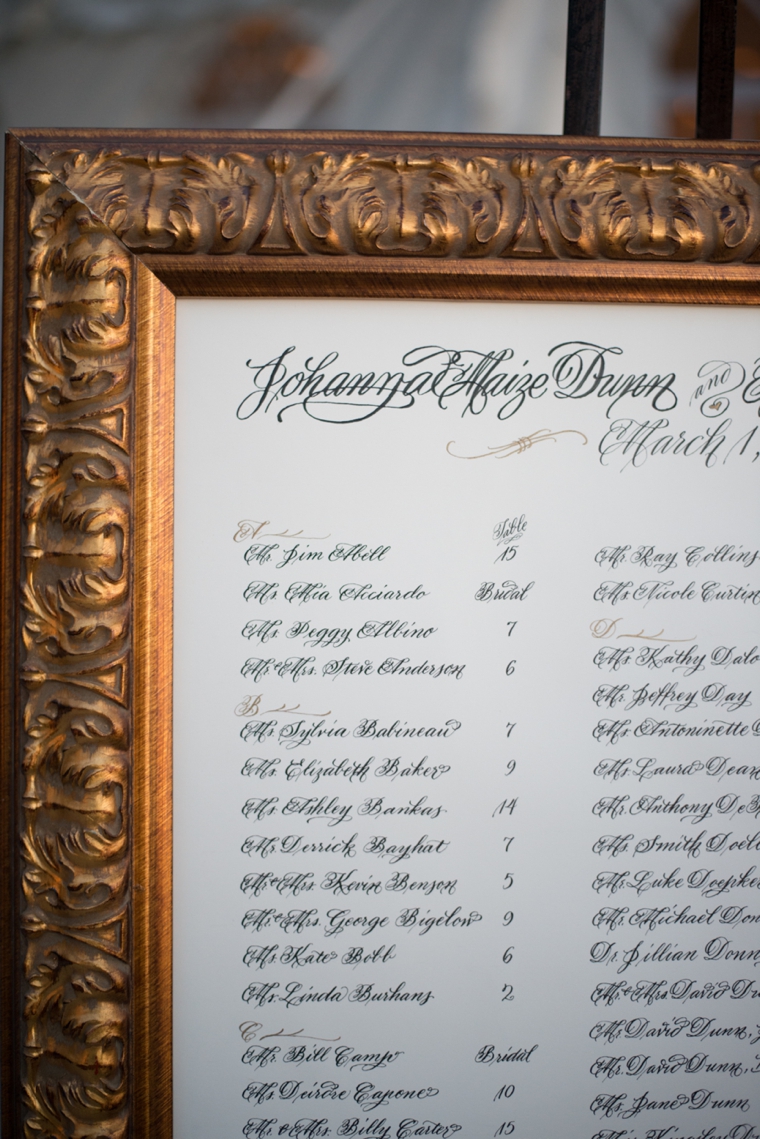 Johanna Maize Dunn and
March 1,
A
Table
Mr. Jim Abell 15
Ms. Mia Acciardo Bridal
Ms. Peggy Albino 7
Mr. & Mrs. Steve Anderson 6
B
Ms. Sylvia Babineau 7
Ms. Elizabeth Baker 9
Ms. Ashley Bankas 14
Mr. Derrick Bayhat 7
Mr. & Mrs. Kevin Benson 5
Mr. & Mrs. George Bigelow 9
Ms. Kate Bobb 6
Ms. Linda Burhans 2
C
Mr. Bill Camp Bridal
Ms. Deirdre Capone 10
Mr. & Mrs. Billy Carter 15
Mr. Ray Collins
Ms. Nicole Curtin
D
Ms. Kathy
Mr. Jeffrey Day
Ms. Antoinette
Ms. Laura
Mr. Anthony
Ms. Smith
Mr. Luke
Mr. Michael
Dr. Jillian
Mr. & Mrs. David
Mr. David Dunn,
Mr. David Dunn,
Ms. Jane Dunn